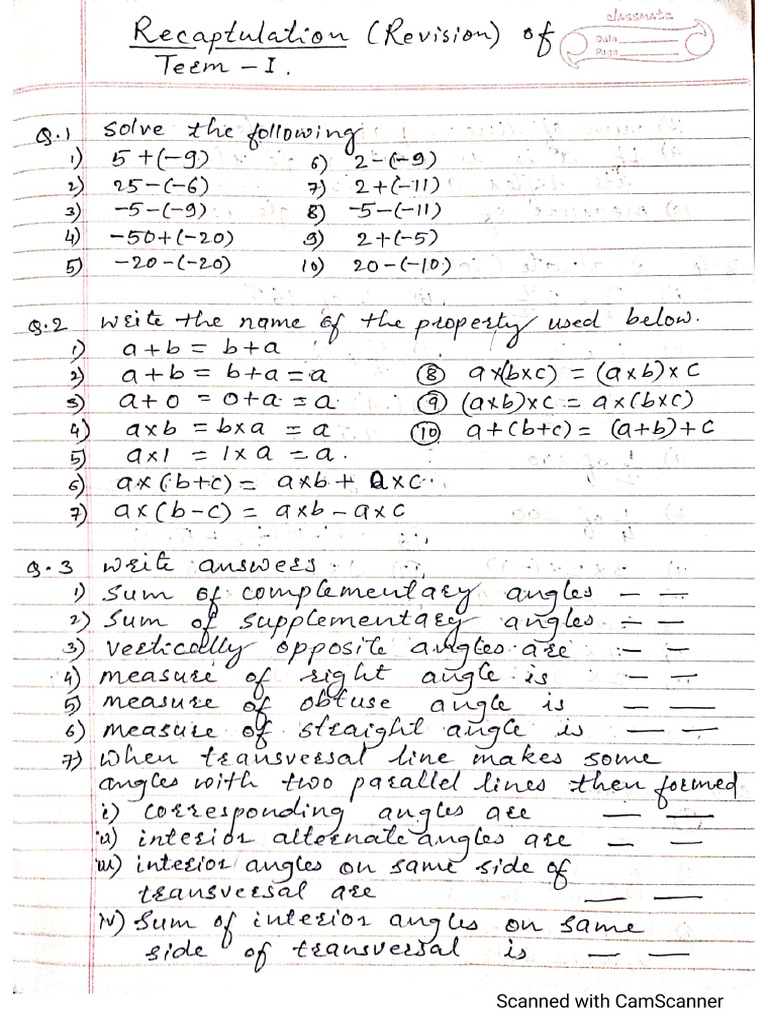 classmate
Date
Page
Recaptulation (Revision) of
Term - I.
Q.1 Solve the following
1) 5+(-9) 6) 2-(-9)
2) 25-(-6) 7) 2+(-11)
3) -5-(-9) 8) -5-(-11)
4) -50+(-20) 9) 2+(-5)
5) -20-(-20) 10) 20-(-10)
Q.2 Write the name of the property used below.
1) a+b = b+a
2) a+b = b+a = a ⑧ a×(b×c) = (a×b)×c
3) a+0 = 0+a = a ⑨ (a×b)×c = a×(b×c)
4) a×b = b×a = a ⑩ a+(b+c) = (a+b)+c
5) a×1 = 1×a = a.
6) a×(b+c) = a×b + a×c
7) a×(b-c) = a×b - a×c
Q.3 Write answers
1) Sum of complementary angles — —
2) Sum of supplementary angles — —
3) vertically opposite angles are — —
4) measure of right angle is — —
5) measure of obtuse angle is — —
6) measure of straight angle is — —
7) When transversal line makes some
angles with two parallel lines then formed
i) corresponding angles are — —
ii) interior alternate angles are — —
iii) interior angles on same side of
transversal are — —
iv) Sum of interior angles on same
side of transversal is — —
Scanned with CamScanner